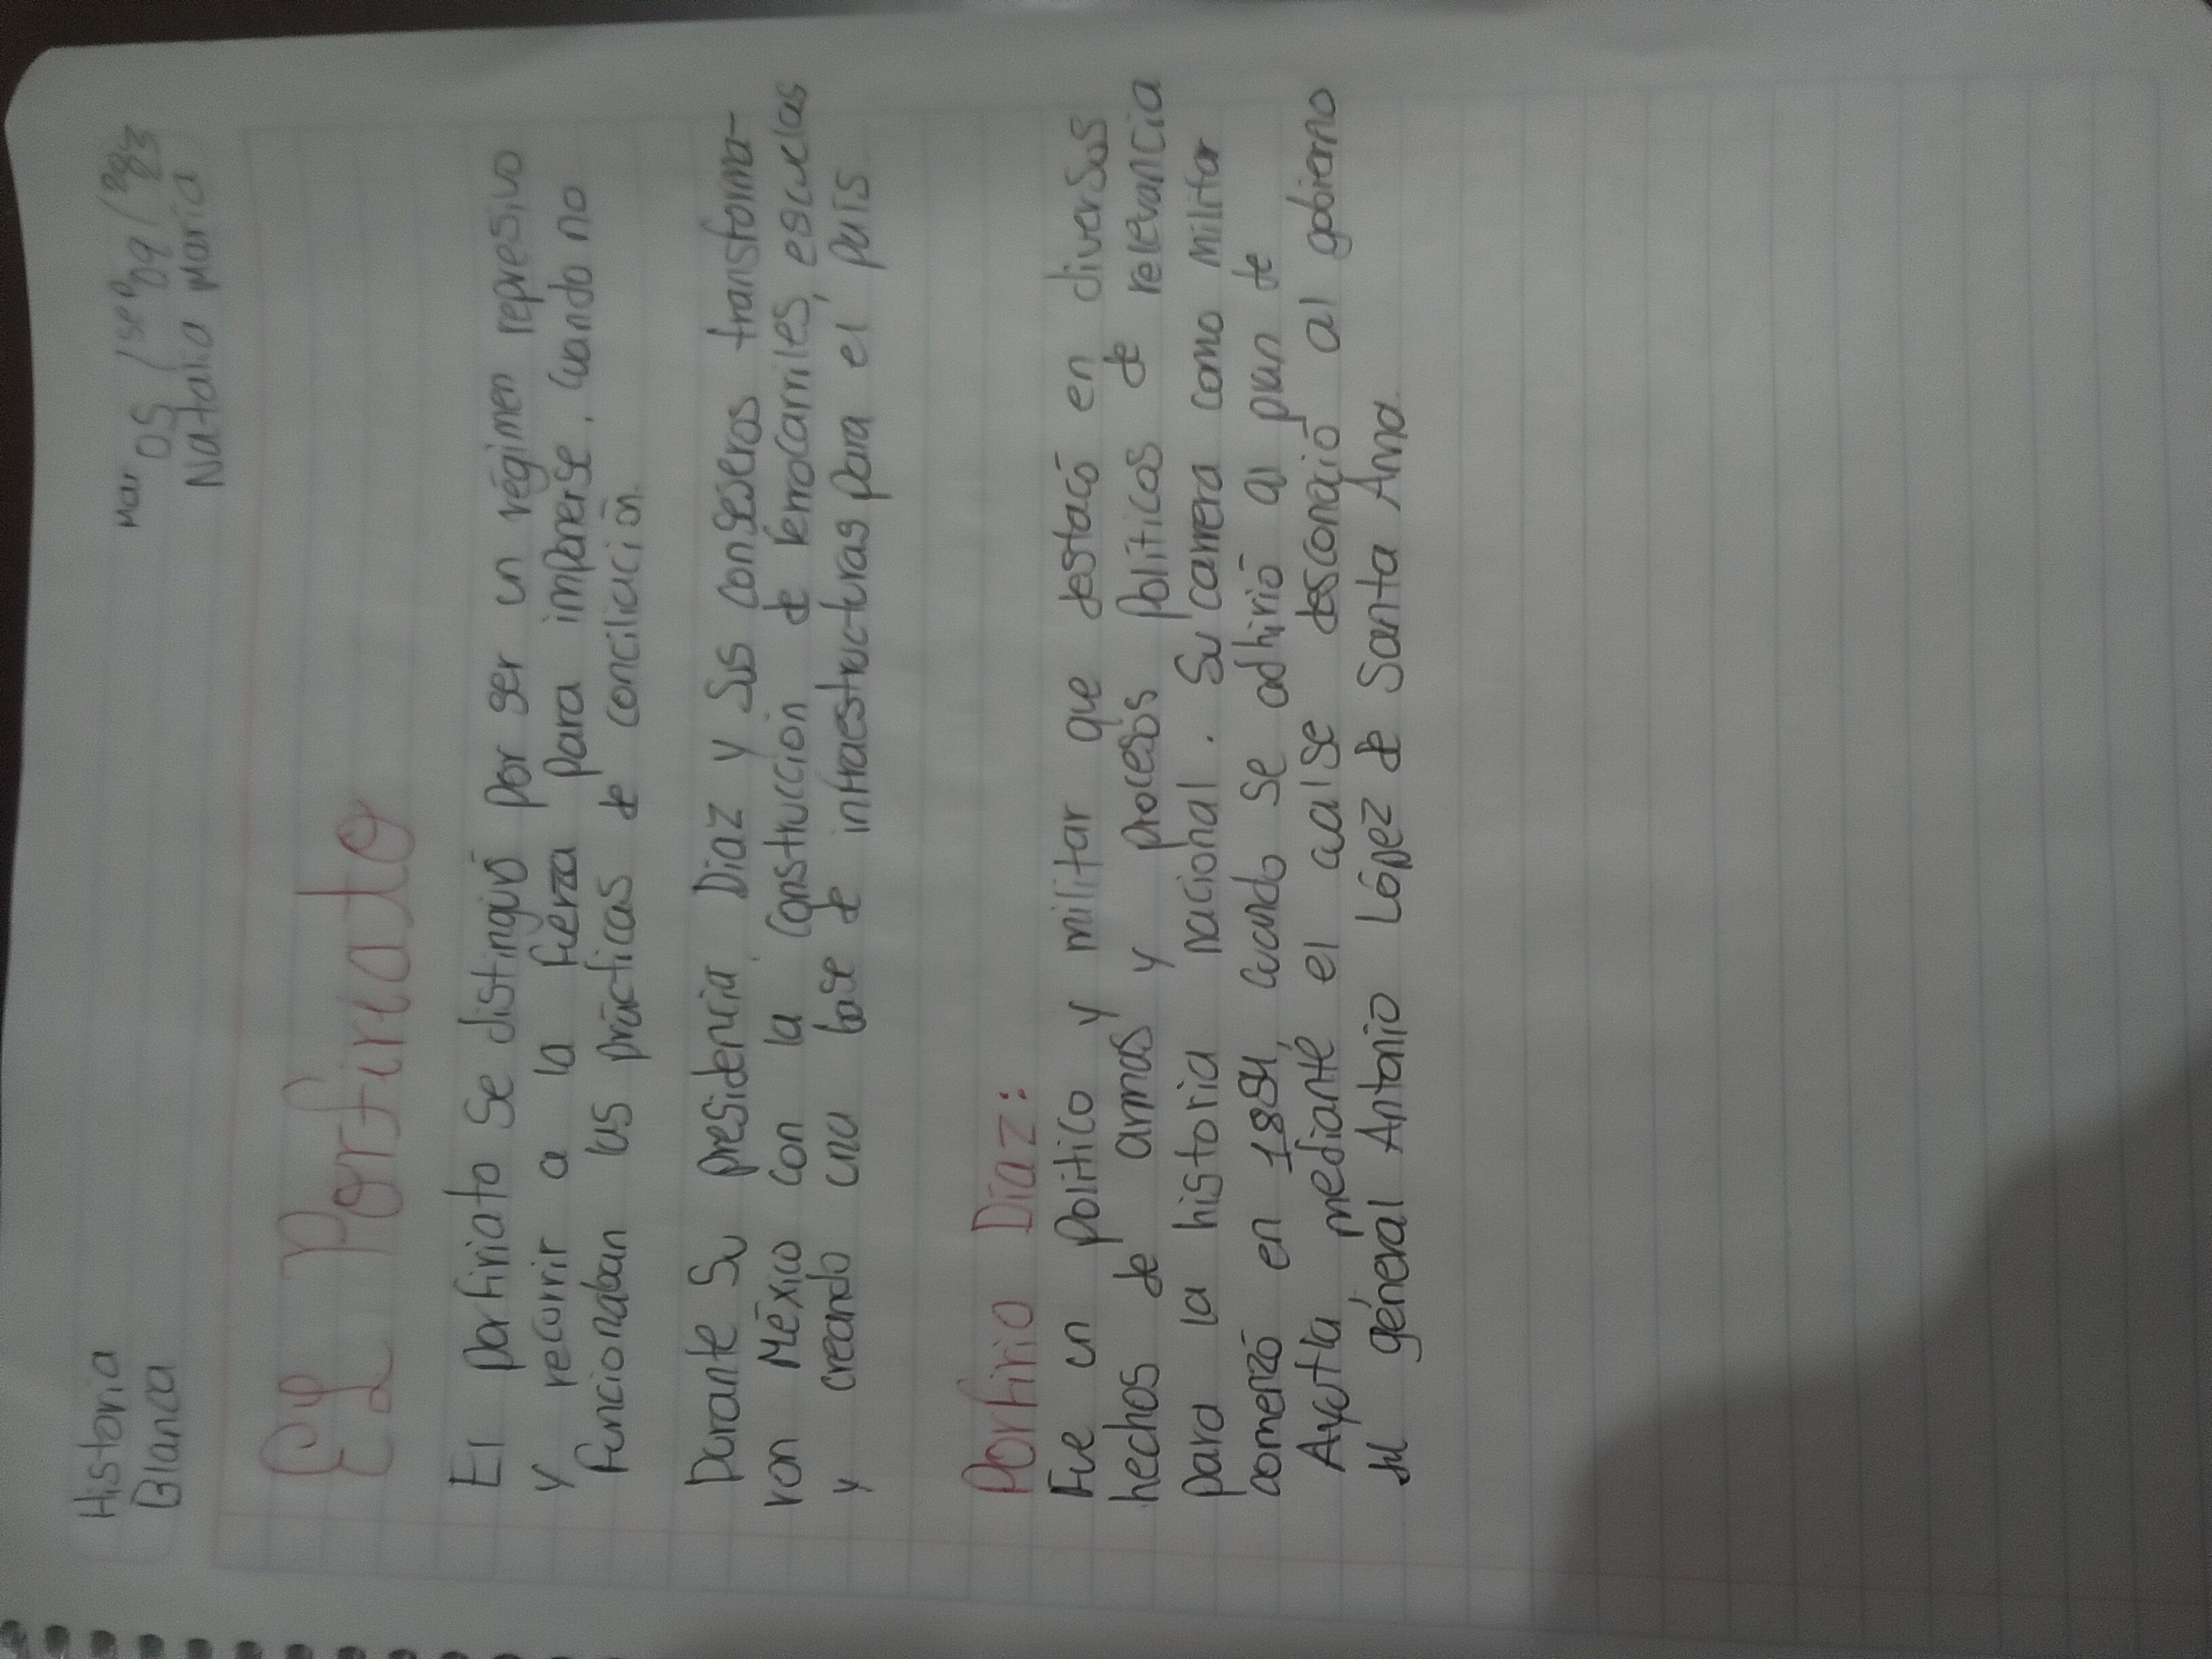 Historia
Blanca
Mar 05 / sep
Natalia María
El Porfiriato
El porfiriato se distinguió por ser un régimen represivo
y recurrir a la fuerza para imponerse, cuando no
funcionaban las prácticas de conciliación.
Durante su presidencia, Díaz y sus conseseros transforma-
ron México con la construcción de ferrocarriles, escuelas
y creando una base de infraestructuras para el país
Porfirio Díaz:
Fue un político y militar que destacó en diversos
hechos de armas y procesos políticos de relevancia
para la historia nacional. Su carrera como militar
comenzó en 1854, cuando se adhirió al plan de
Ayutla mediante el cual se desconoció al gobierno
del géneral Antonio López de Santa Anna.